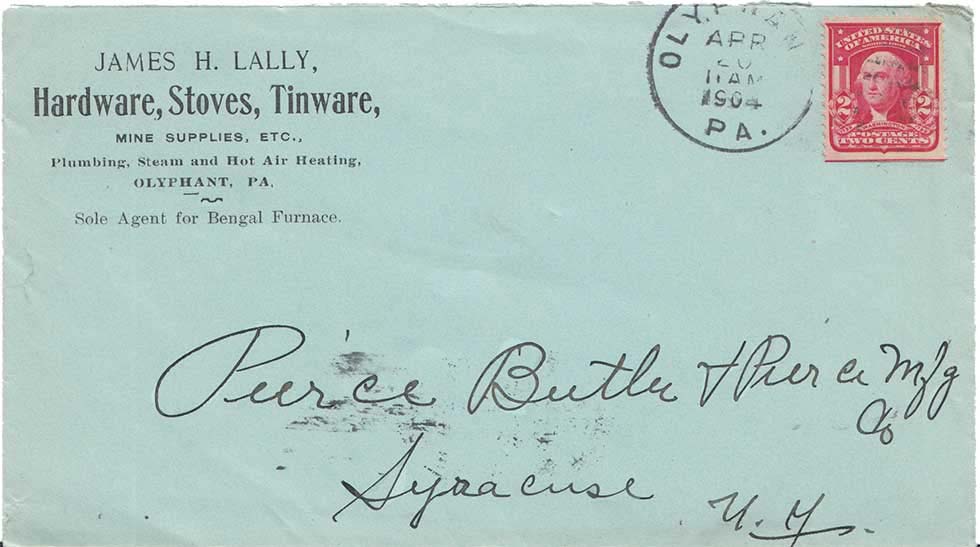 JAMES H. LALLY,
Hardware, Stoves, Tinware,
MINE SUPPLIES, ETC.,
Plumbing, Steam and Hot Air Heating,
OLYPHANT, PA.
Sole Agent for Bengal Furnace.
OLYPHANT
APR
20
11 AM
1904
PA.
UNITED STATES
OF AMERICA
2 2
WASHINGTON
POSTAGE
TWO CENTS
Pierce Butler & Pierce Mfg
Co
Syracuse
N.Y.